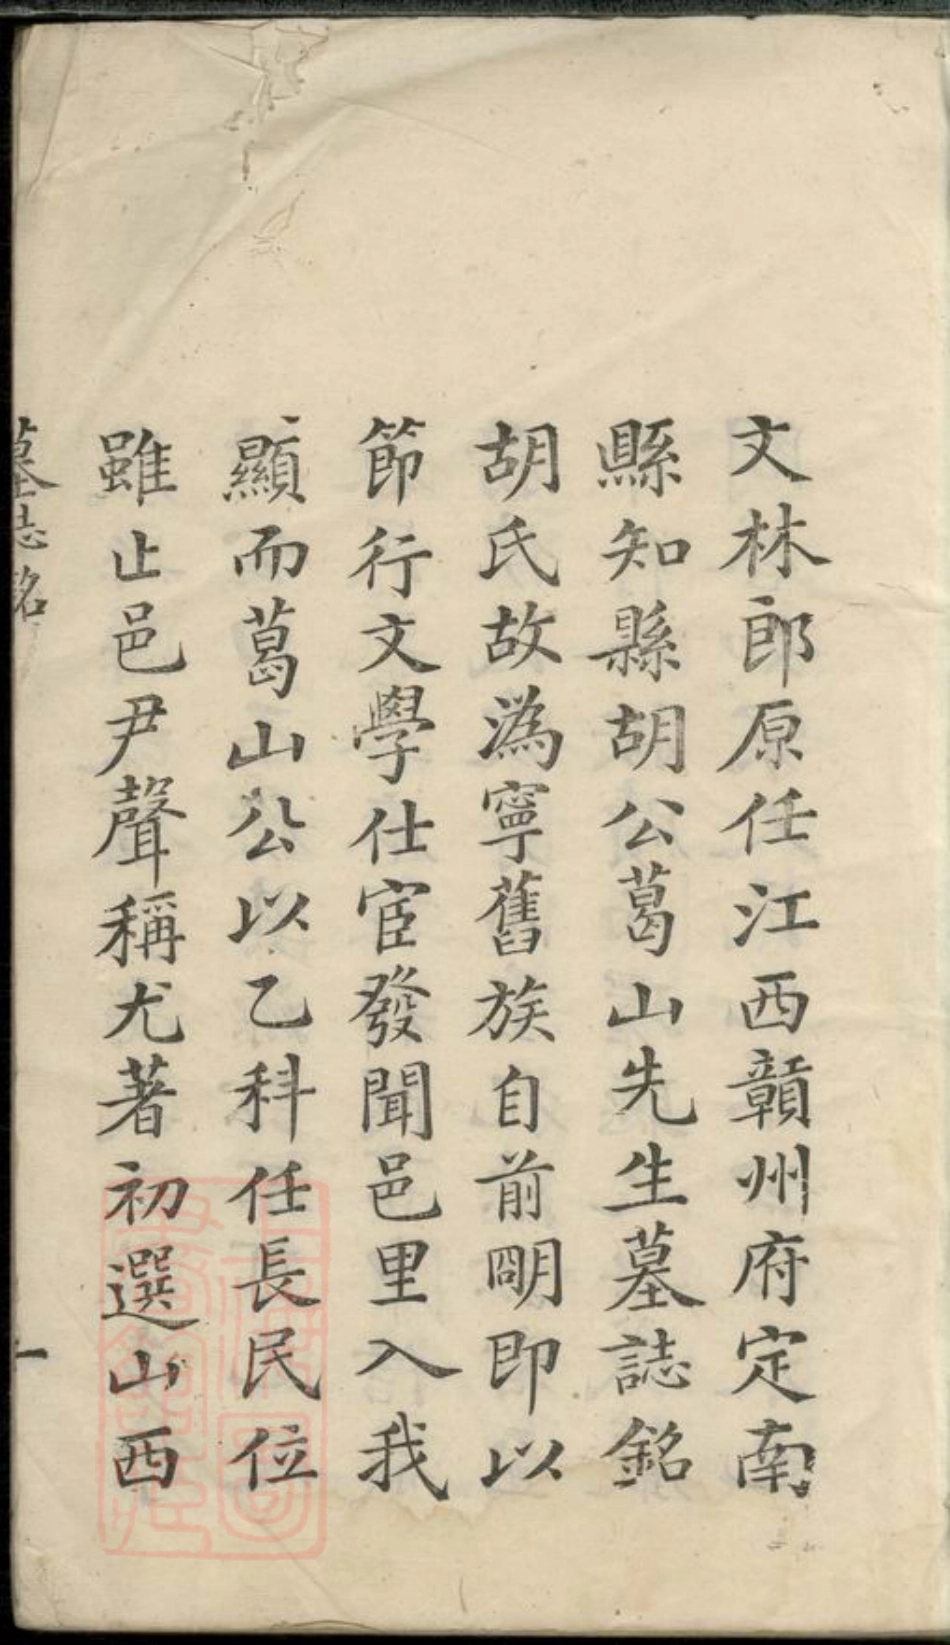 文林郎原任江西贑州府定南
縣知縣胡公葛山先生墓誌銘
胡氏故溈寧舊族自前朙即以
節行文學仕宦發聞邑里入我
顯而葛山公以乙科任長民位
雖止邑尹聲稱尤著初選山西
墓志銘
一